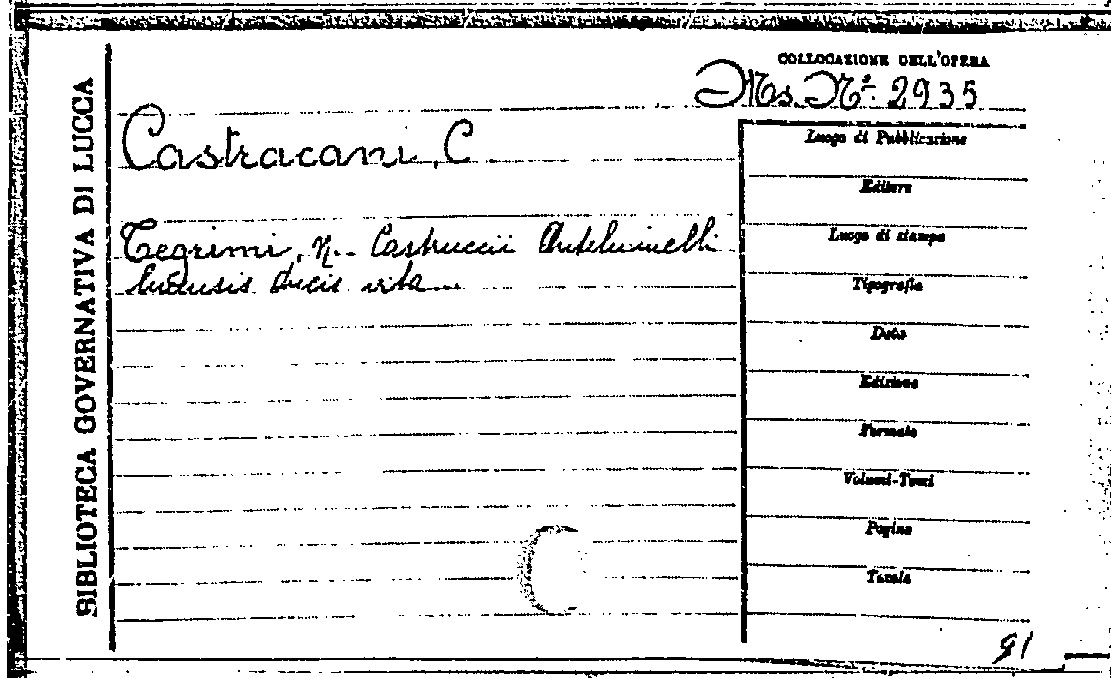 BIBLIOTECA GOVERNATIVA DI LUCCA
COLLOCAZIONE DELL'OPERA
Ms. Nº. 2935
Castracani, C
Tegrimi, N. - Castruccii Antelminelli
lucensis ducis vita
Luogo di Pubblicazione
Editore
Luogo di stampa
Tipografia
Data
Edizione
Formato
Volumi-Tomi
Pagine
Tavole
91